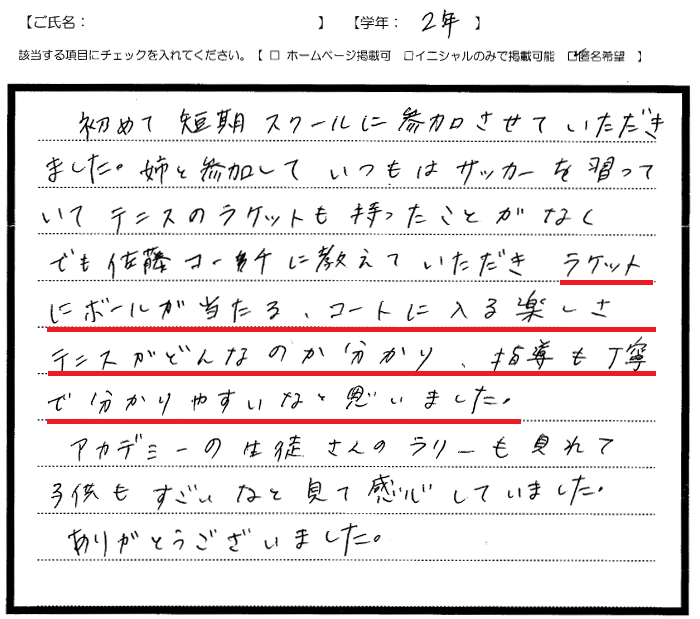 【ご氏名： 】 【学年： 2年 】
該当する項目にチェックを入れてください。【 □ ホームページ掲載可 □イニシャルのみで掲載可能 ☑匿名希望 】
初めて 短期 スクールに 参加させて いただき
ました。姉と 参加して いつもは サッカーを 習って
いて テニスの ラケットも 持ったことが なく
でも 佐藤 コーチに 教えて いただき ラケット
にボールが 当たる、コートに 入る 楽しさ
テニスが どんなのか 分かり、指導も 丁寧
で 分かりやすいなと 思いました。
アカデミーの 生徒さんの ラリーも 見れて
子供も すごいなと 見て 感心していました。
ありがとうございました。